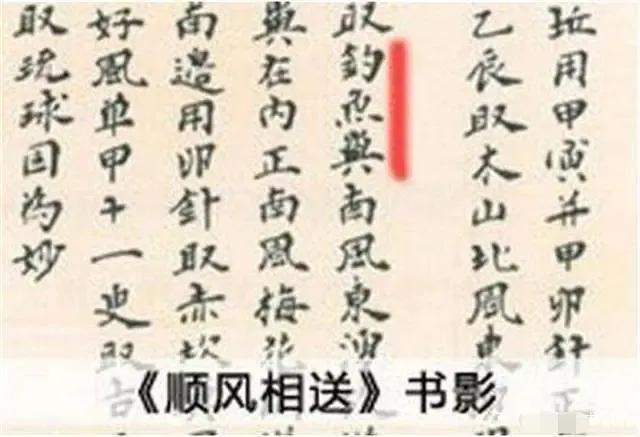 坵用甲寅并甲卯針正
乙辰取木山北風東
取釣魚與南風東湧
與在内正南風梅花
南邉用卯針取赤坎
好風单甲十一更取古
取琉球国為妙
《顺风相送》书影